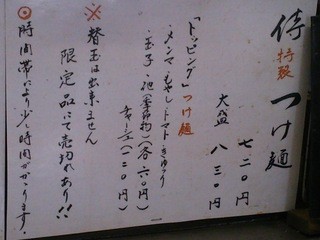 侍 特製 つけ麺
七二〇円
大盛 八三〇円
「トッピング」つけ麺
・メンマ・もやし・トマト・きゅうり
・玉子・他(季節物)(各六〇円)
チャーシュー(一二〇円)
※替玉は出来ません
限定品にて売切れあり!!
◎時間帯により少し時間がかかります。